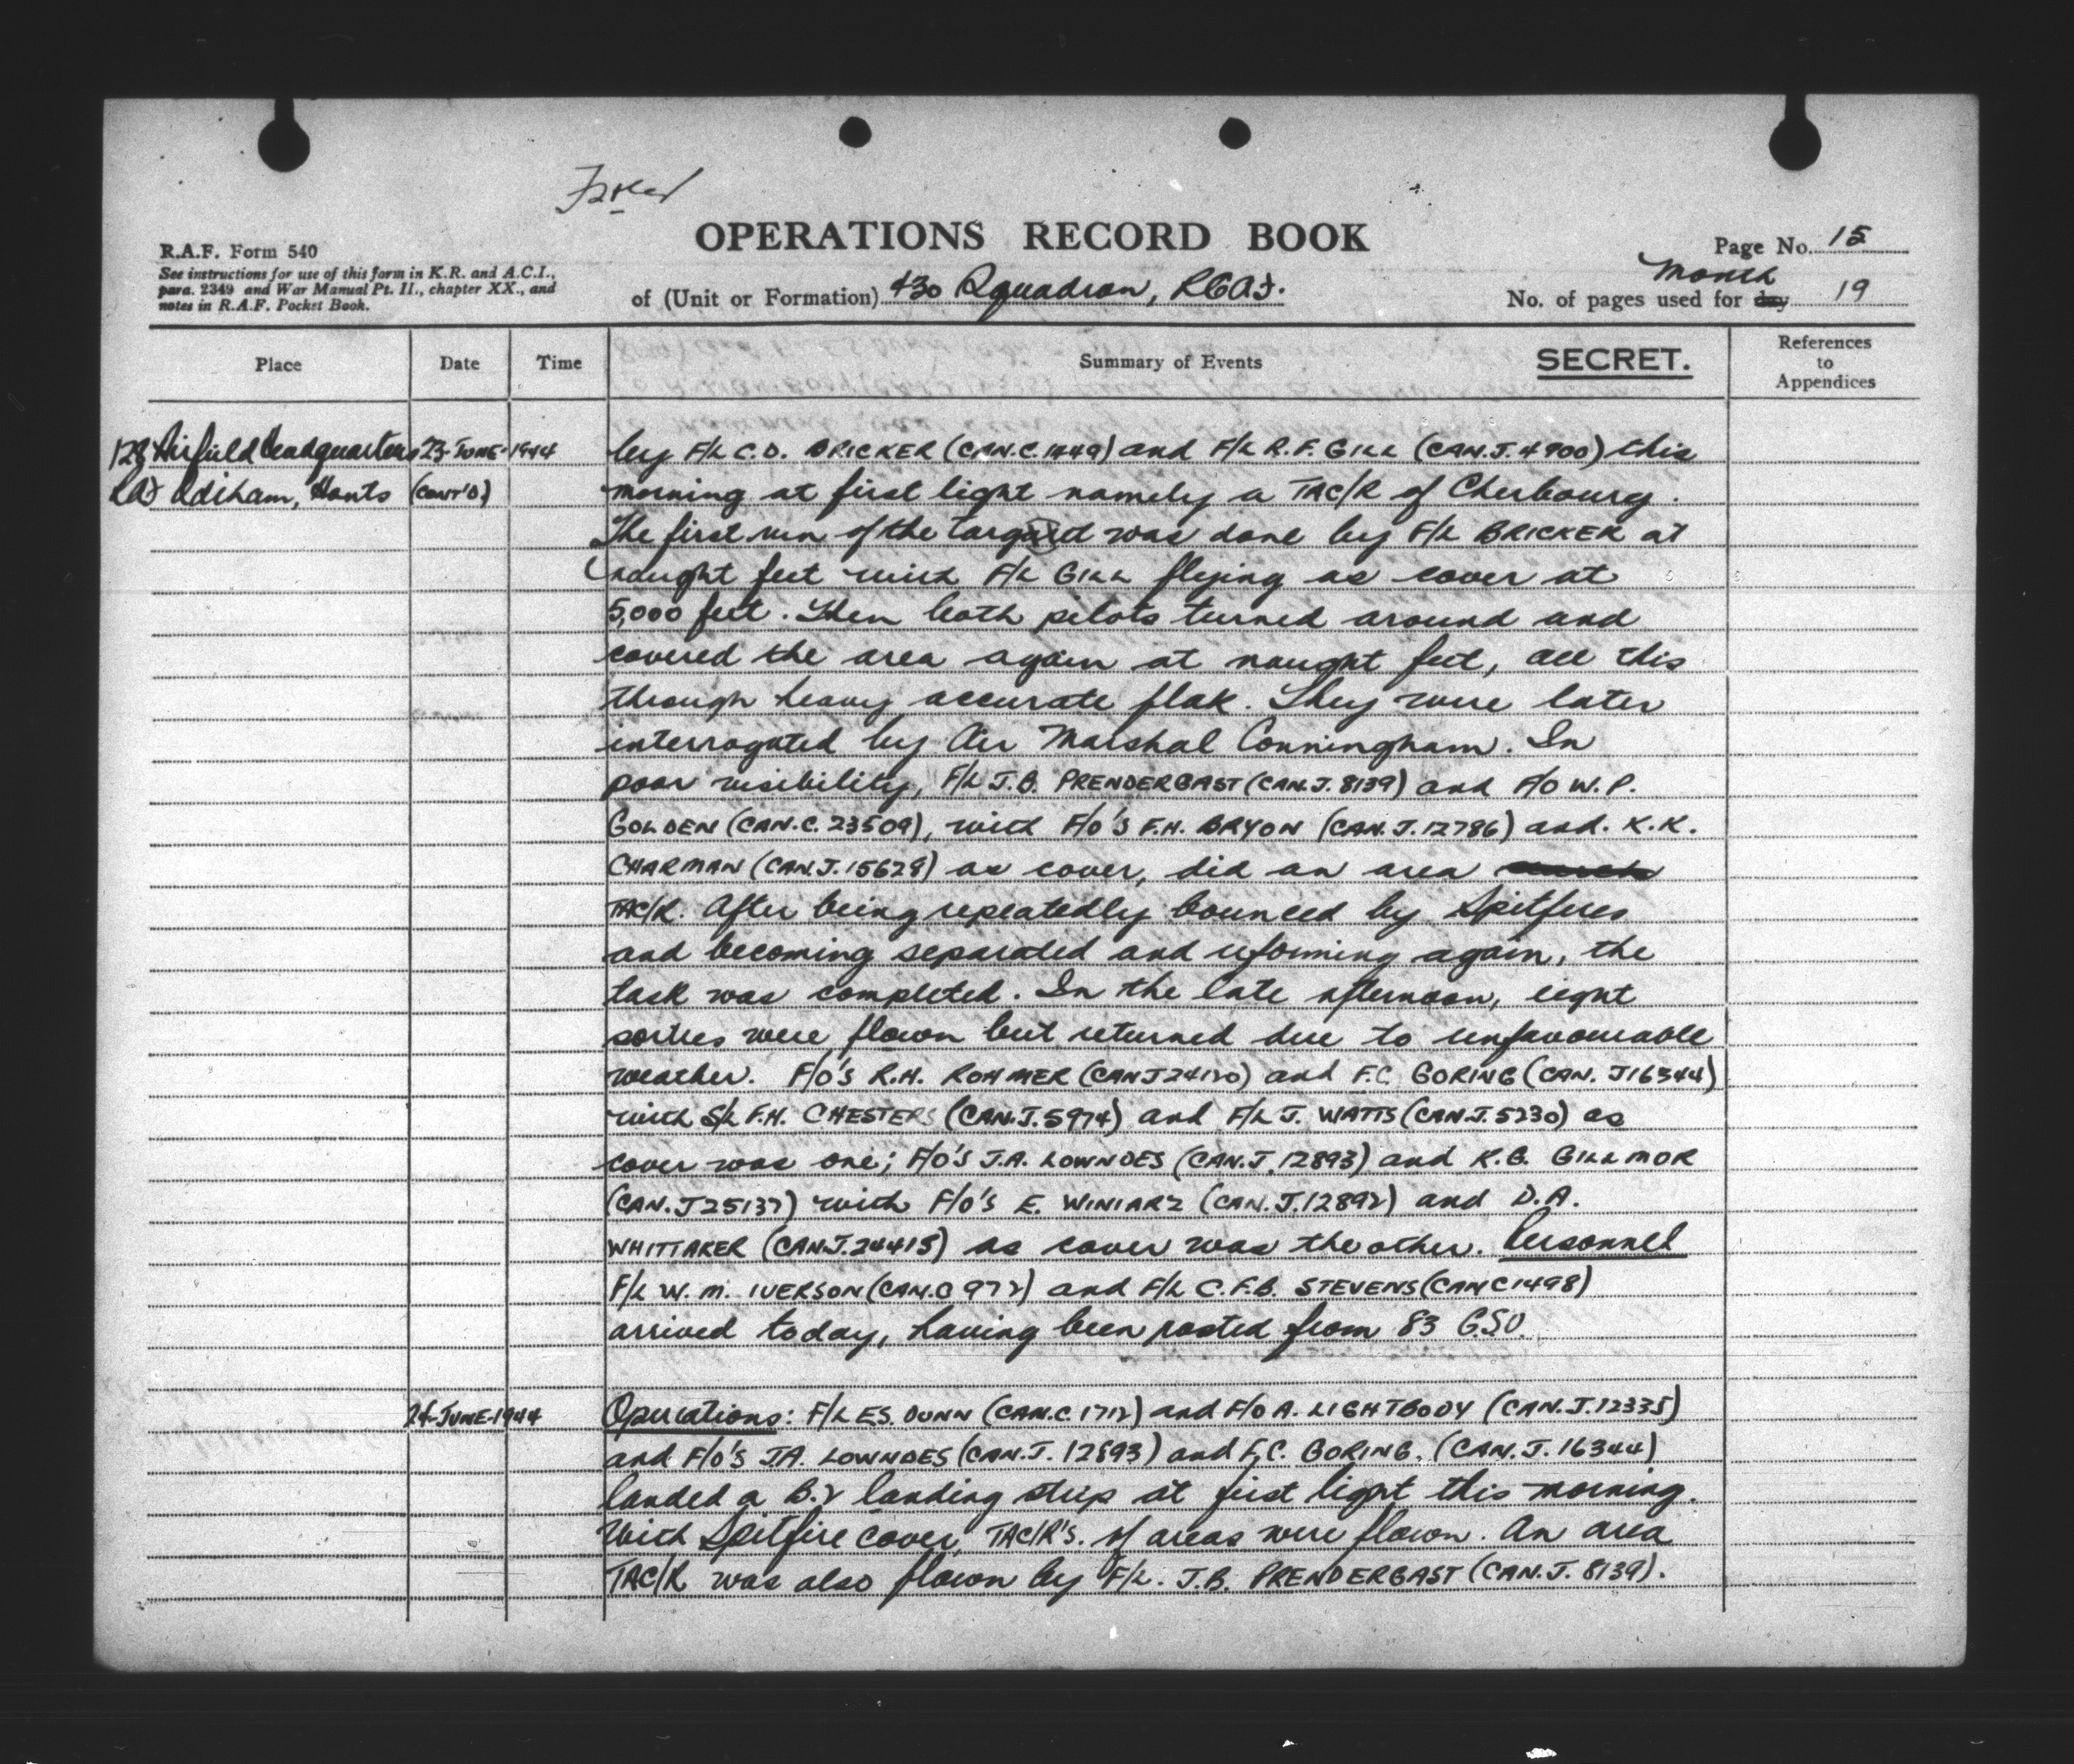 OPERATIONS RECORD BOOK
R.A.F. Form 540
See instructions for use of this form in K.R. and A.C.I.,
para. 2349 and War Manual Pt. II., chapter XX., and
notes in R.A.F. Pocket Book.
of (Unit or Formation) 430 Squadron, RCAF.
Page No. 15
No. of pages used for day month 19
Place Date Time Summary of Events SECRET. References to Appendices
128 Airfield Headquarters 23-JUNE-1944 by F/L C.D. BRICKER (CAN.C.1449) and F/L R.F. GILL (CAN.J.4900) this
RAF Odiham, Hants (CONT'D.) morning at first light namely a TAC/R of Cherbourg.
The first run of the target was done by F/L BRICKER at
naught feet with F/L GILL flying as cover at
5,000 feet. Then both pilots turned around and
covered the area again at naught feet, all this
through heavy accurate flak. They were later
interrogated by Air Marshal Conningham. In
poor visibility, F/L J.B. PRENDERGAST (CAN.J. 8139) and F/O W.P.
GOLDEN (CAN.C. 23509), with F/O'S F.H. BRYON (CAN.J.12786) and. K.K.
CHARMAN (CAN.J.15629) as cover, did an area
TAC/R. After being repeatedly bounced by Spitfires
and becoming separated and reforming again, the
task was completed. In the late afternoon, eight
sorties were flown but returned due to unfavourable
weather. F/O'S R.H. ROHMER (CANJ24120) and F.C. GORING (CAN. J16344)
with S/L F.H. CHESTERS (CAN.J.5974) and F/L J. WATTS (CAN.J.5230) as
cover was one; F/O'S J.A. LOWNDES (CAN.J.12893) and K.G. GILLMOR
(CAN.J25137) with F/O'S E. WINIARZ (CAN.J.12892) and D.A.
WHITTAKER (CANJ.24415) as cover was the other. Personnel
F/L W.M. IVERSON (CAN.C972) and F/L C.F.B. STEVENS (CANC1498)
arrived today, having been posted from 83 G.S.U.
24-JUNE-1944 Operations: F/L E.S. DUNN (CAN.C.1712) and F/O A. LIGHTBODY (CAN.J.12335)
and F/O'S J.A. LOWNDES (CAN.J. 12893) and F.C. GORING. (CAN.J. 16344)
landed a B.2 landing strip at first light this morning.
With Spitfire cover, TAC/R'S. of areas were flown. An area
TAC/R was also flown by F/L. J.B. PRENDERGAST (CAN.J. 8139).